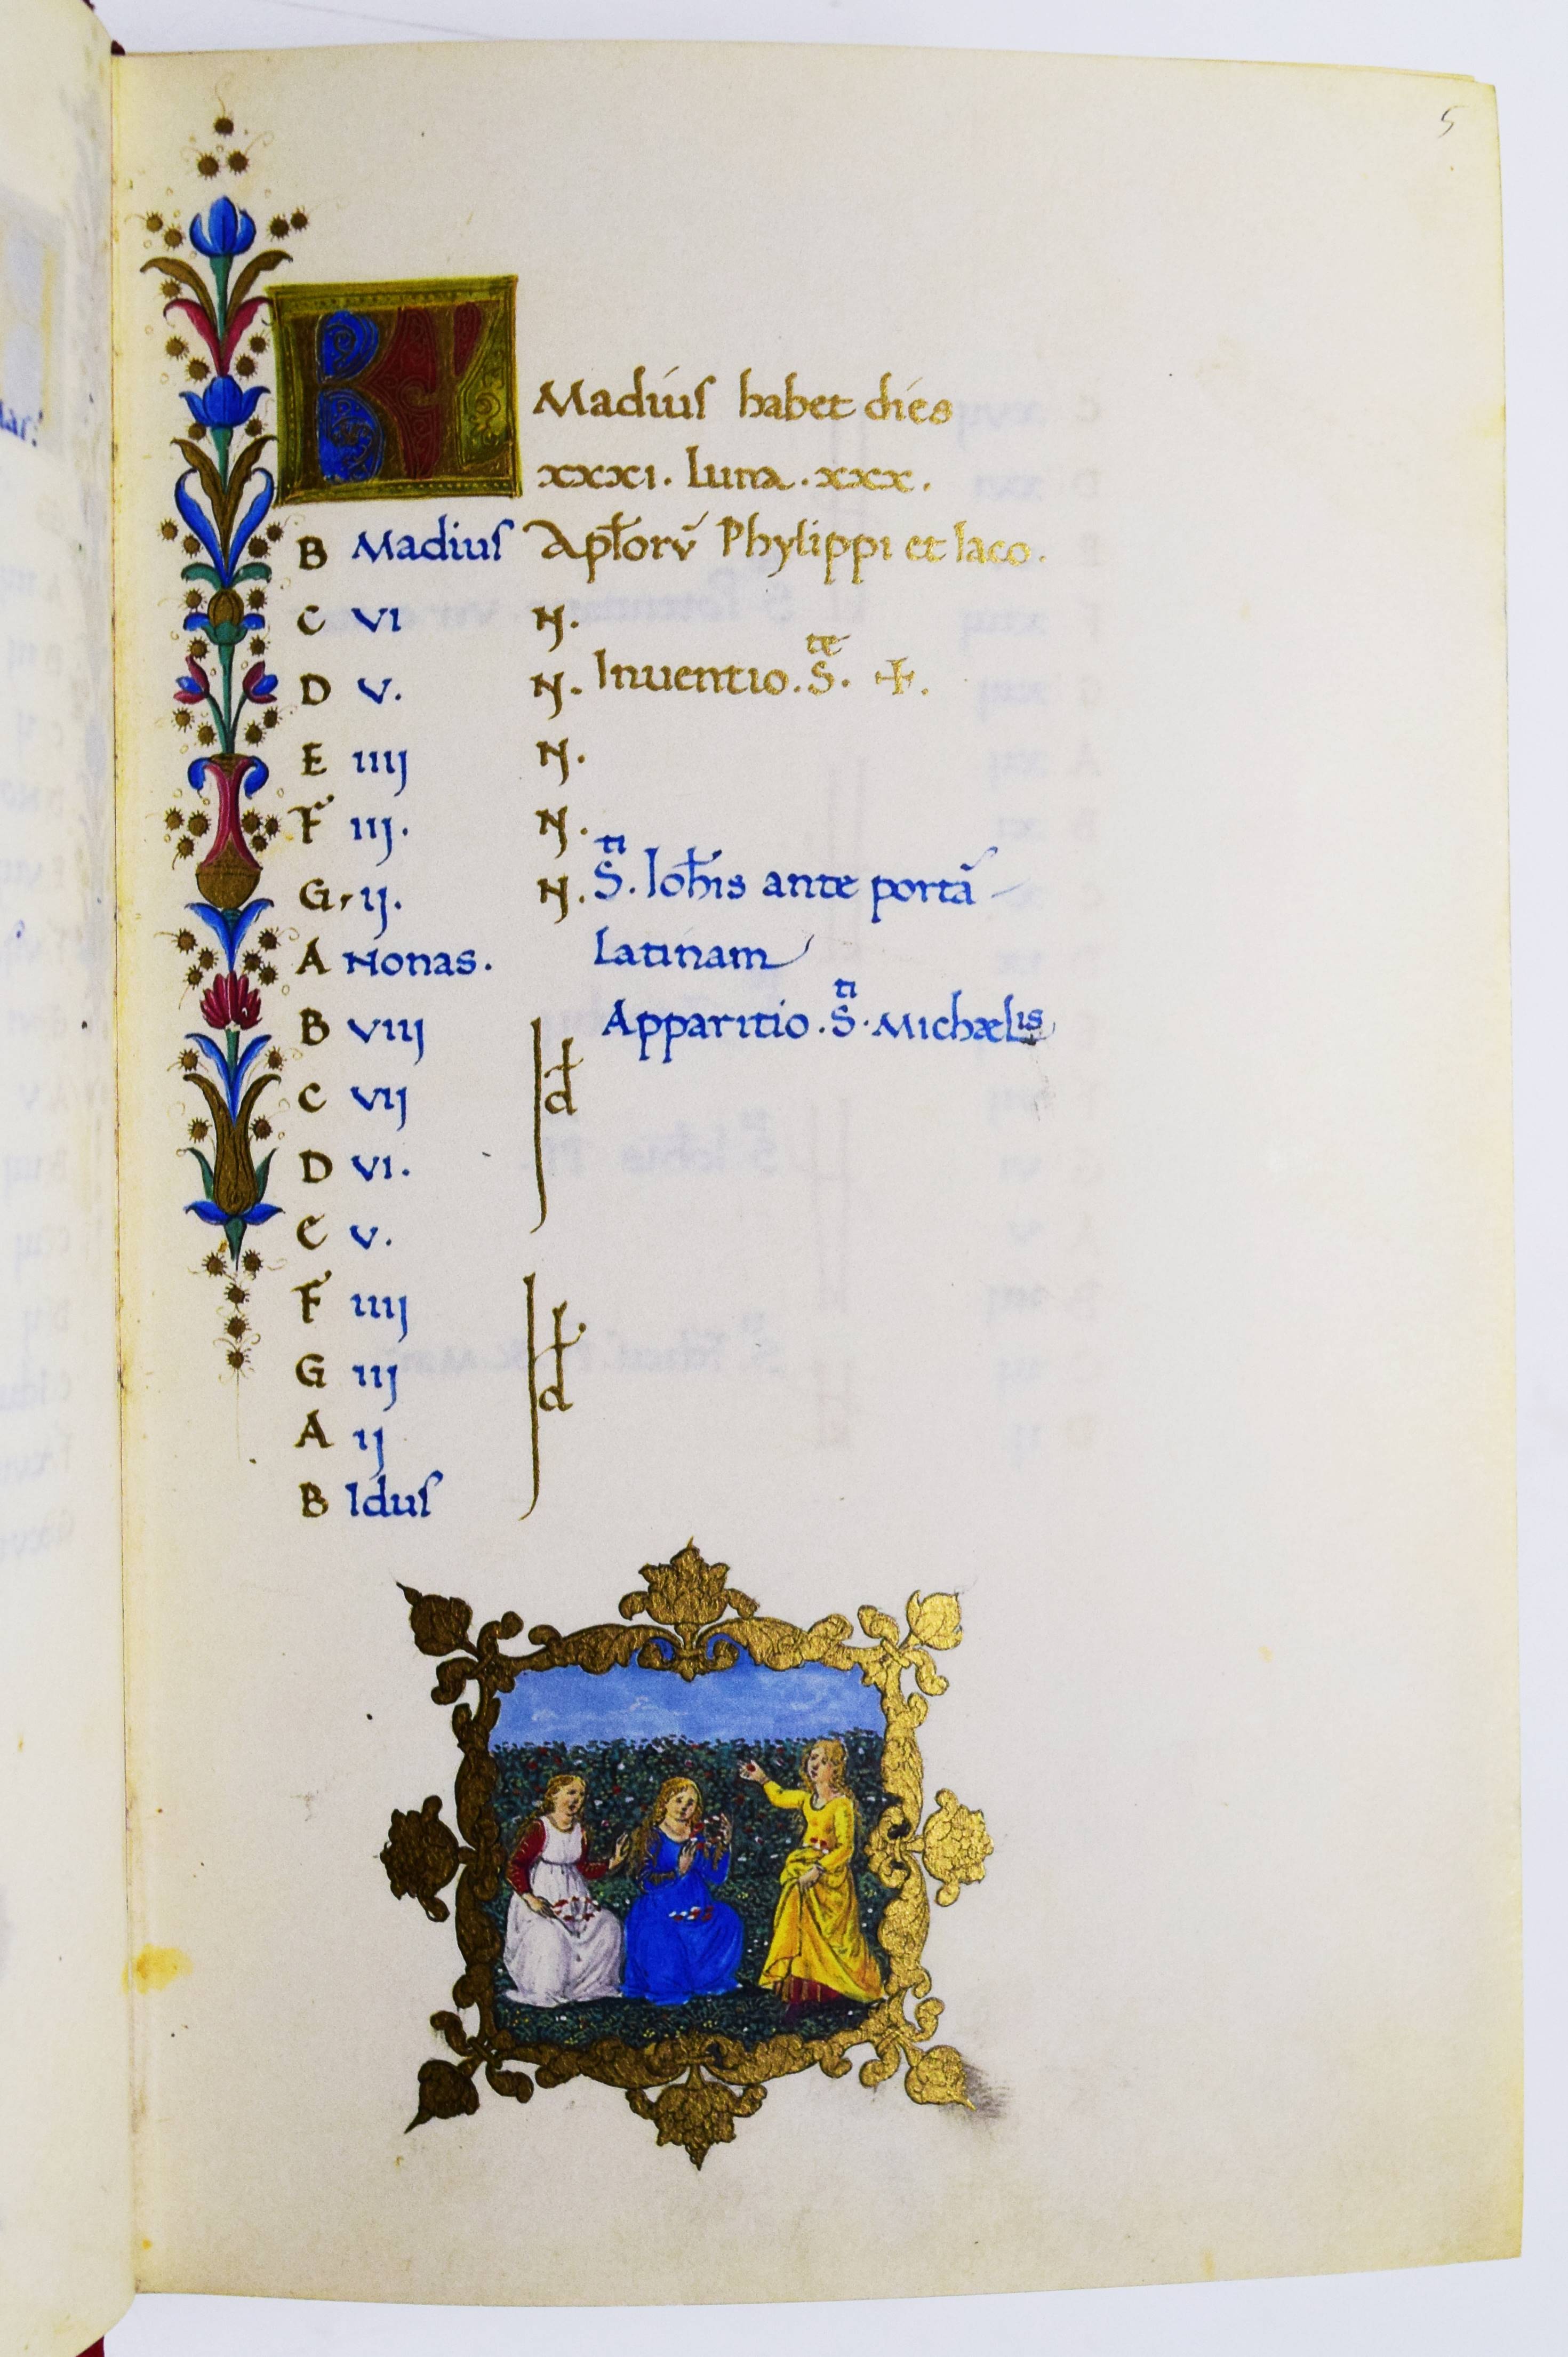 5
KL Madius habet dies
xxxi. Luna. xxx.
B Madius Apl'orũ Phylippi et Iaco.
C VI N.
D V. N. Inuentio. S.te ✠.
E IIIJ N.
F IIJ. N.
G IJ. N. S.ti Ioh̄is ante portã
A Nonas. Latinam
B VIIJ Apparitio. S.ti Michaelis
C VIJ Id
D VI.
E V.
F IIIJ
G IIJ Id
A IJ
B Idus